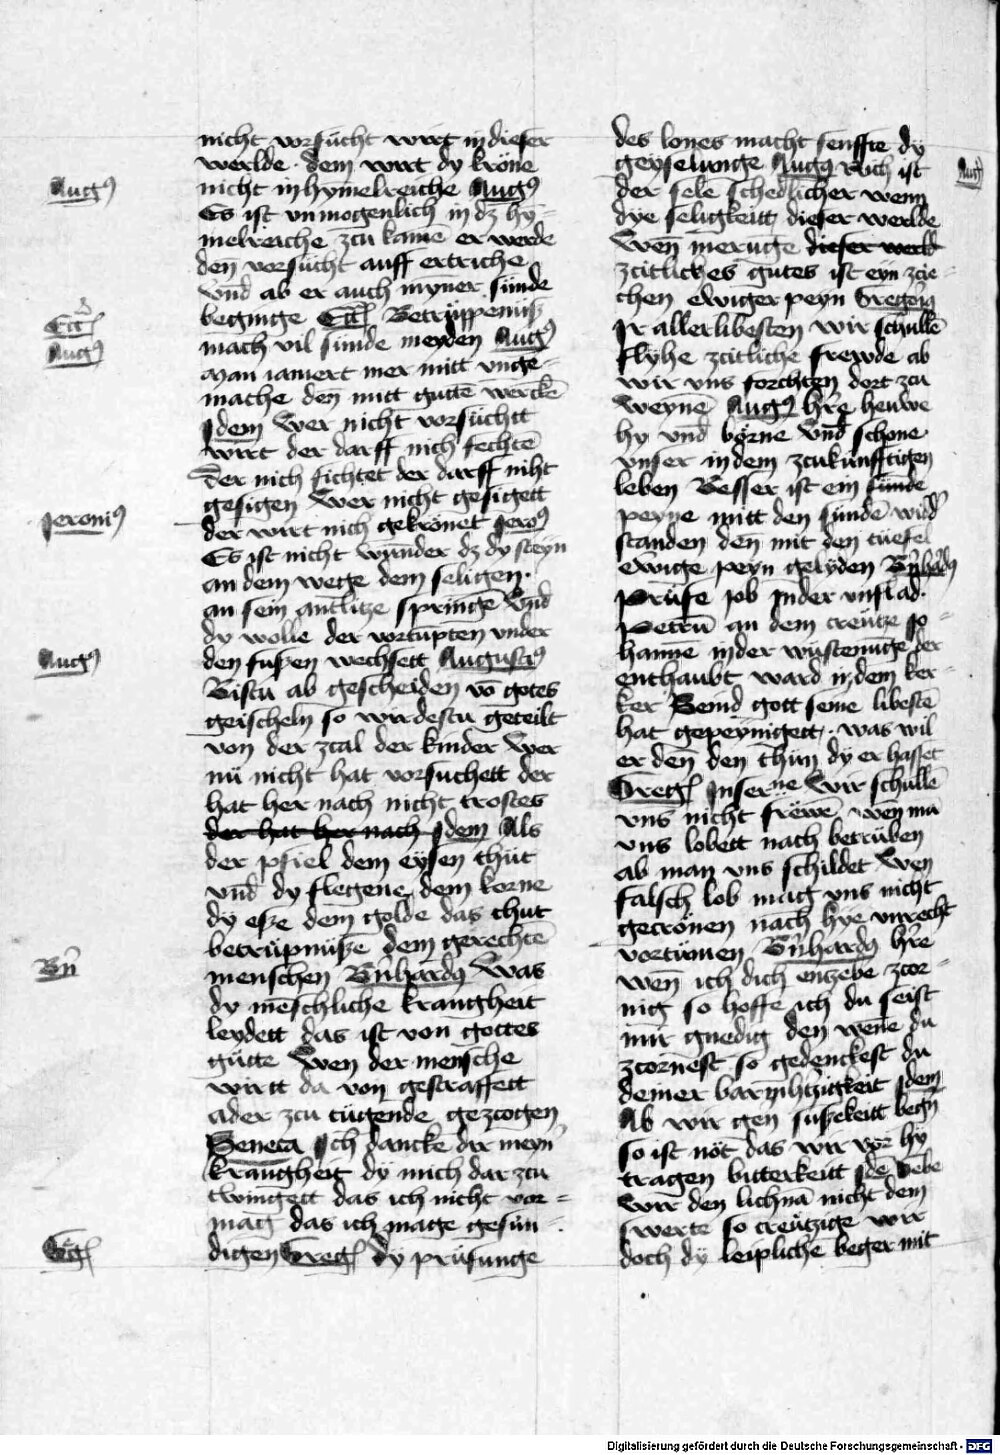 nicht vorsücht wirt in dieser
werlde · dem wirt dy kröne
nicht in hymelreiche Augꝰ
Es ist vnmogenlich in dz hy-
melreiche zcu kamē er werde
den vorsücht auff ertriche
vnd ab er auch myner sünde
beginge Betrüppenüß
mach vil sünde meyden Augꝰ
Man iamert mer mitt vnge-
mache den mitt gutte wercke
Jdem Wer nicht vorsüchtt
wirt der darff nich fechtē
Der nich fichtet der darff niht
gesigen Wer nicht gesigett
der wirt nich gekrönet Jeroꝰ
Es ist nicht wunder dz dy steyn
an dem wege dem seligen ·
an sein antlitze springē Vnd
dy wolle der vortüpten vnder
den fußen wechsett Augustꝰ
Bistu ab gescheiden vō gotes
geischeln so wirdestu geteilt
von der zcal der kinder Wer
nü nicht hat vorsuchett der
hat her nach nicht trostes
der hat her nach Jdem Als
der pfiel dem eysen thüt
vnd dy flegene dem korne
dy eße dem golde das thut
betrüpnüße dem gerechtē
menschen Bn̄hardꝰ Was
dy mēschliche krangheit
leydett das ist von gottes
gütte Wen der mensche
wirtt da von gestraffett
ader zcu tügende gezcogen
Seneca Jch dancke dir meyn
krangheit dy mich dar zcu
twingett das ich nicht vor =
mag das ich mage gesün -
digen Greg dy prüfunge
des lones macht senffte dy
geyselunge Augꝰ Nich ist
der sele schedlicher wenn
dye seligkeitt dieser werlde
Wen̄ dieser werld
zcitlickes gutes ist eyn zcie -
chen ewiger peyn Gregoriꝰ
Jr allerlibesten wir schullē
flyhe zcitliche frewde ab
wir vns forchten dort zcu
weynē Augꝰ hr̄e henwe
hy vnd börne vnd schone
vnser in dem zcukünfftigen
leben Besser ist ein sünde
peyne mitt den sündē wid
standen den̄ mit den tüefel
ewige peyn gelyden Bn̄hardꝰ
Prüfe Job in der vnflad ·
Petrū an dem creütze jo -
hanne in der wüstenüge der
enthaubt ward in dem ker -
ker Seind gott seine libestē
hat gepeynigett · was wil
er den̄ den thün dy er hasset
Greg Wir schullē
vns nicht frewē wen mā
vns lobett nach betrüben
ab man vns schildet Wen
falsch lob mag vns nicht
gecrönen nach hye vnrecht
vortümen Bn̄hardꝰ hr̄e
wen̄ ich dich zcor -
nig so hoffe ich du seist
mir gnedig den wene du
zcornest so gedenckest du
deiner barmhtzigkeit Jdem
Ab wir gen süßekeitt begn̄
so ist nöt das wir vor hy
tragen bitterkeitt Jdē
wir den lichnā nicht dem
swerte so creützige wir
doch dy leipliche beger mit
Augꝰ
Augꝰ
Jeroniꝰ
Augꝰ
Bn̄
Greg
Augꝰ
Digitalisierung gefördert durch die Deutsche Forschungsgemeinschaft - DFG